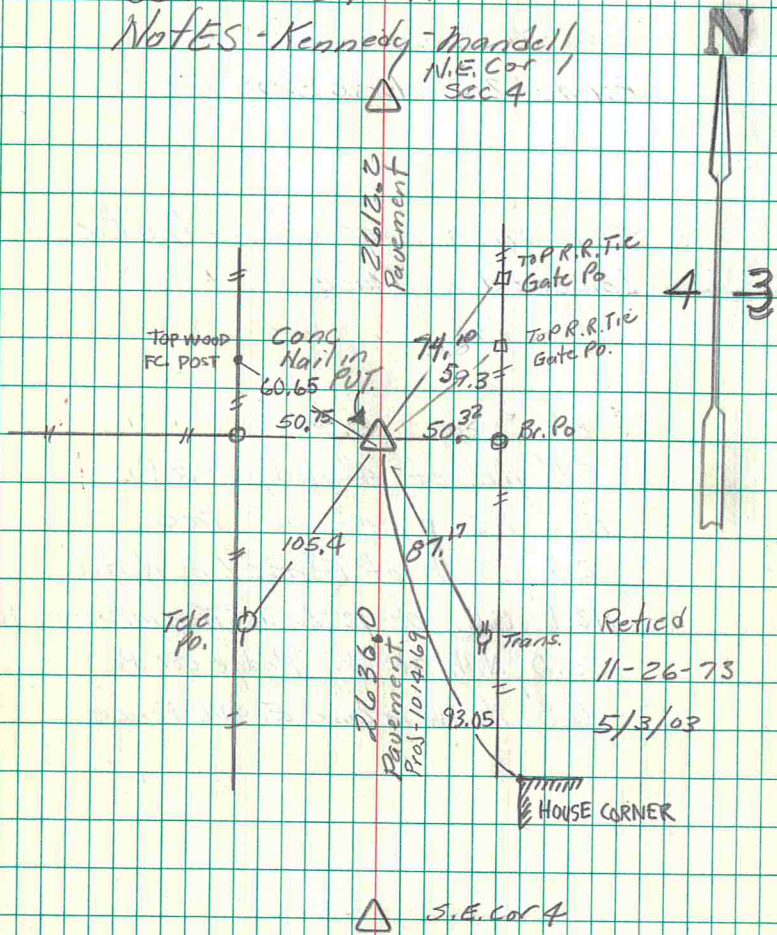 Notes - Kennedy - Mandell
N.E. Cor
Sec 4
N
2612.2
Pavement
Top R.R. Tie
Gate Po
4 3
Top R.R. Tie
Gate Po.
TOP WOOD
FC. POST
Conc
Nail in
PVT.
60.65
59.3
50.75
50.32
Br. Po
105.4
87.17
Tele
Po.
Trans.
Retied
11-26-73
5/3/03
2636.0
Pavement
Proj-1014169
93.05
HOUSE CORNER
S.E. Cor 4